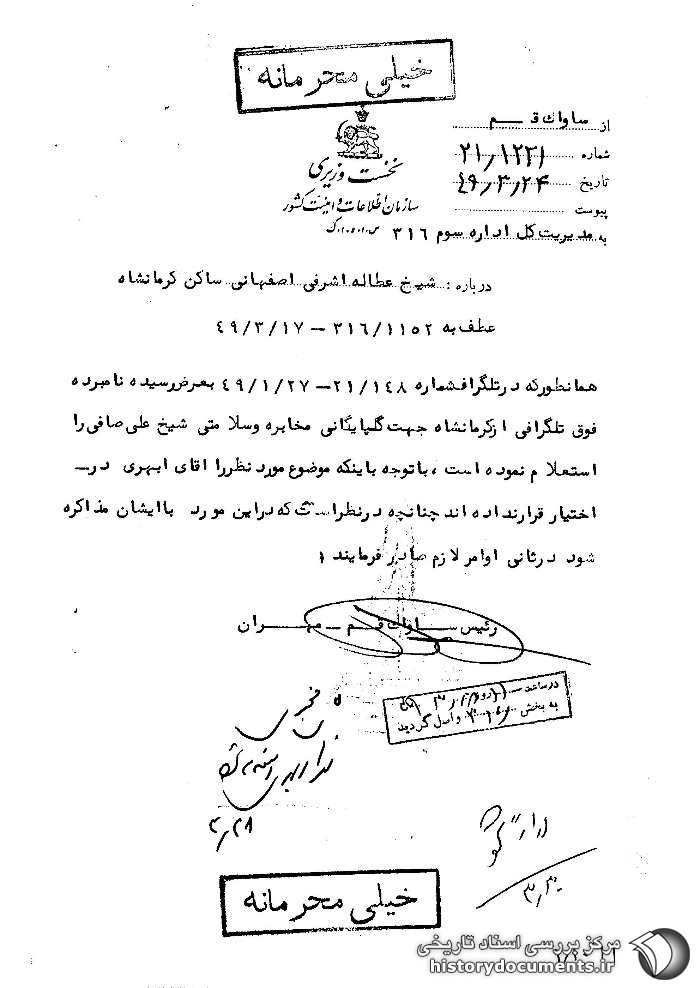 خیلی محرمانه
از ساواك قم
شماره ۲۱/۱۲۳۱
تاریخ ۴۹/۳/۲۴
پیوست
نخست وزیری
سازمان اطلاعات و امنیت کشور
س.ا.و.ا.ک
به مدیریت کل اداره سوم ۳۱۶
درباره : شیخ عطاله اشرفی اصفهانی ساکن کرمانشاه
عطف به ۳۱۶/۱۱۵۲ – ۴۹/۳/۱۷
همانطورکه درتلگراف شماره ۲۱/۱۴۸ – ۴۹/۱/۲۷ بعرض رسیده نامبرده
فوق تلگرافی ازکرمانشاه جهت گلپایگانی مخابره وسلامتی شیخ علی صافی را
استعلام نموده است ، باتوجه باینکه موضوع مورد نظررا اقای ابهری در
اختیار قرارنداده اند چنانچه درنظراست که دراین مورد باایشان مذاکره
شود درثانی اوامر لازم صادر فرمایند
رئیس ساواك قم – مهران
در ساعت
به بخش واصل گردید
۳/۲۸
۳/۳۰
خیلی محرمانه
مرکز بررسی اسناد تاریخی
historydocuments.ir